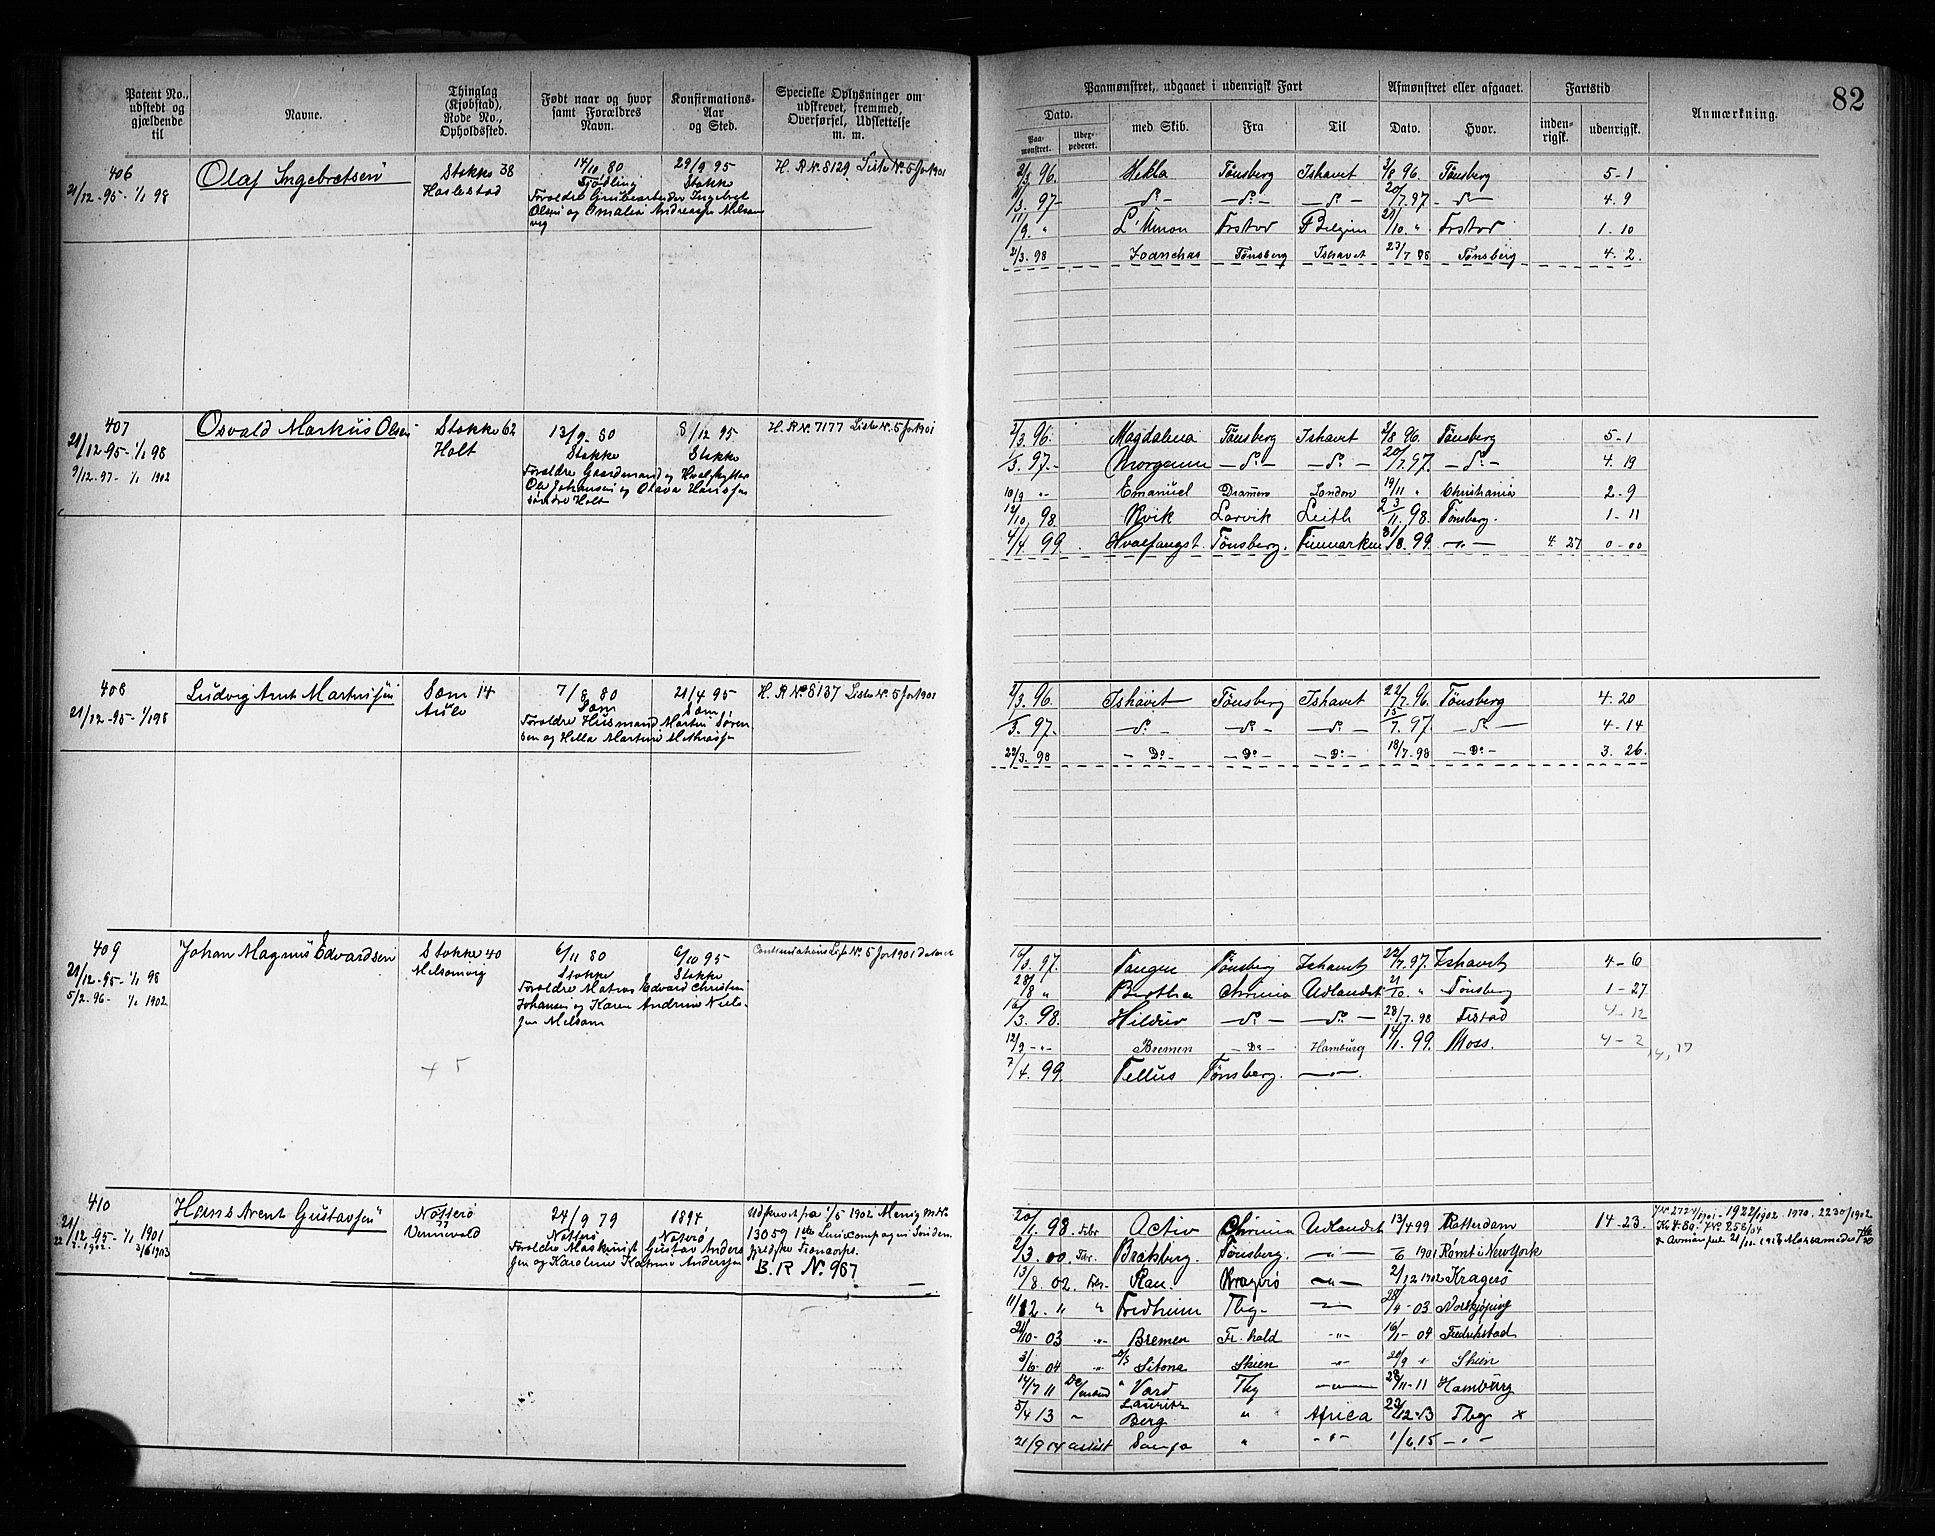 82
Patent No., udstedt og gjældende til
Navne.
Thinglag (Kjøbstad), Rode No., Opholdssted.
Født naar og hvor samt Forældres Navn.
Konfirmations-Aar og Sted.
Specielle Oplysninger om udskrevet, fremmed, Overførsel, Udslettelse m. m.
Paamønstret, udgaaet i udenrigsk Fart
Afmønstret eller afgaaet.
Fartstid
Anmærkning.
Dato.
med Skib.
Fra
Til
Dato.
Hvor.
inden-rigsk.
udenrigsk.
Paa-mønstret.
406
21/12-95-1/1 98
Olaf Ingebretsen
Stokke 38
Haslestad
14/10 80
Sjødling
29/9 95
Stokke
Forældre Grubearbeider Ingebregt
Olsen og Amalie Andreasen Melsom
vig
H. R. Nº 8129 Liste Nº 5 for 1901
2/3 96. Hekla Tønsberg Ishavet 2/8 96. Tønsberg 5-1
1/3. 97- —do— —do— —do— 20/7.97. —do— 4. 9
11/9. " L'Union Frstad Belgien 21/10 " Frstad 1. 10
2/3. 98 Joanchas Tønsberg Ishavet 23/7 98 Tønsberg 4. 2.
407
21/12-95-1/1 98
9/12. 97.- 1/1 1902
Osvald Markus Olsen
Stokke 62
Holt
13/9- 80
Stokke
8/12 95
Stokke
Forældre Gaardmand og Hvalfanger
Ole Johansen og Olava Hansen
søndre Holt
H. R Nº 7177 Liste Nº 5 for 1901
2/3. 96. Magdalena Tønsberg Ishavet 2/8 96. Tønsberg 5-1
1/3. 97.- Morgenen —do— —do— 20/7.97. —do— 4. 19
10/9 " Emanuel Dramen London 19/11 " Christiania 2-9
12/10, 98. Kvik Larvik Leith 23/11. 98. Tønsberg. 1-11
4/4. 99 Hvalfangst Tønsberg. Finmarken 31/8. 99. —"— 4. 27 0-00
408
21/12-95-1/1 98
Ludvig Arnt Martinsen
Sem 14
Aulo
7/8 80
Sem
21/4 95
Sem
Forældre Husmand Martin Søren
sen og Hella Martine Mathiasen
H. R Nº 8137 Liste Nº 5 for 1901
2/3. 96. Ishavet Tønsberg Ishavet 22/7. 96. Tønsberg 4. 20
1/3. 97. —do— —do— —do— 15/7. 97. —do— 4-14
22/3. 98 —Do— —Do— —Do— 18/7.98 —Do— 3. 26.
409
21/12-95-1/1 98
5/2. 96- 1/1 1902
Johan Magnus Edvardsen
Stokke 40
Melsomvig
6/11 80
Stokke
6/10 95
Stokke
Forældre Matros Edvard Christian
Johansen og Karen Andrine Niel-
sen Melsom
16/3. 97. Tangen Tønsberg Ishavet 22/7. 97. Ishavet 4-6
28/8 " Bertha Chrinia Udlandet 21/10 " Tønsberg 1-27
16/3. 98. Hildur —do— —do— 28/7.98 Frstad 4-12
12/9 -"- Bremen —Do— Hamburg 14/1. 99. Moss. 4-2
14, 17
7/4. 99. Tellus Tønsberg. —"—
410
21/12-95- 1/1 1901
Hans Arent Gustavsen
Nøtterø
77
24/9 79
Nøtterø
1894
Nøterø
Forældre Maskinist Gustav Anders
sen og Karoline Katrine Andersen
Udskrevet fra 1/5 1902 Menig m. Nº
13059 1ste Liniecompagni Sønden-
fjeldske
B. R Nº 967
20/1. 98. Activ Chrinia Udlandet 13/4 99 Rotterdam 14-23.
2/3. 00. Braksberg. Tønsberg. —"— 6 1901 Rømt i New York
13/8. 02. Ran. Kragerø —"— 2/12 1902 Kragerø
11/12. " " Fredheim Tbg- —"— 28/9-03 Norkjøping
21/10-03 " Bremen Fr. hald " 16/1-04 Fredrikstad
3/6. 04 " Sitona Skien " 20/9 " Skien
14/7 11 " Vard Tbg —"— 28/11-11 Hamburg
5/4 13 Lauritz
Berg " Africa 23/12-13 Tbg x
21/9 14 " - " - 1/6.15 -"-